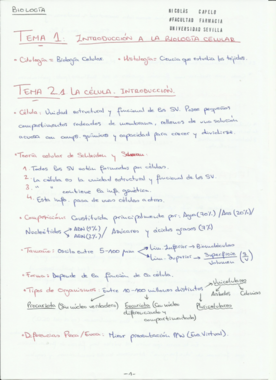 BIOLOGÍA
NICOLÁS CAPELO
FACULTAD FARMACIA
UNIVERSIDAD SEVILLA
TEMA 1. INTRODUCCIÓN A LA BIOLOGÍA CELULAR
• Citología = Biología Celular • Histología = Ciencia que estudia los tejidos.
TEMA 2.1 LA CÉLULA. INTRODUCCIÓN.
• Célula: Unidad estructural y funcional de los SV. Posee pequeños
compartimentos rodeados de membrana, rellenos de una solución
acuosa con comp. químicos y capacidad para crecer y dividirse.
• Teoría celular de Schleiden y
1. Todos los SV están formados por células.
2. La célula es la unidad estructural y funcional de los SV.
3. " " contiene la inf. genética.
4. Esta info. pasa de unas células a otras.
• Composición: Constituida principalmente por: Agua (70%) / Aas (20%) /
Nucleótidos ADN (1%) ARN (7%) / Azúcares y ácidos grasos (7%)
• Tamaño: Oscila entre 5-100 μm Lím. Inferior → Biomoléculas
Lím. Superior → Superficie / Volumen
• Forma: Depende de la función de la célula.
• Tipos de Organismos: Entre 10-100 millones distintos
Unicelulares
Aislados Colonias
Procariota (Sin núcleo verdadero) Eucariota (Con núcleo Pluricelulares
diferenciado y
compartimentado)
• Diferencias Proca/Euca: Mirar presentación PPW (Ens. Virtual).
-1-